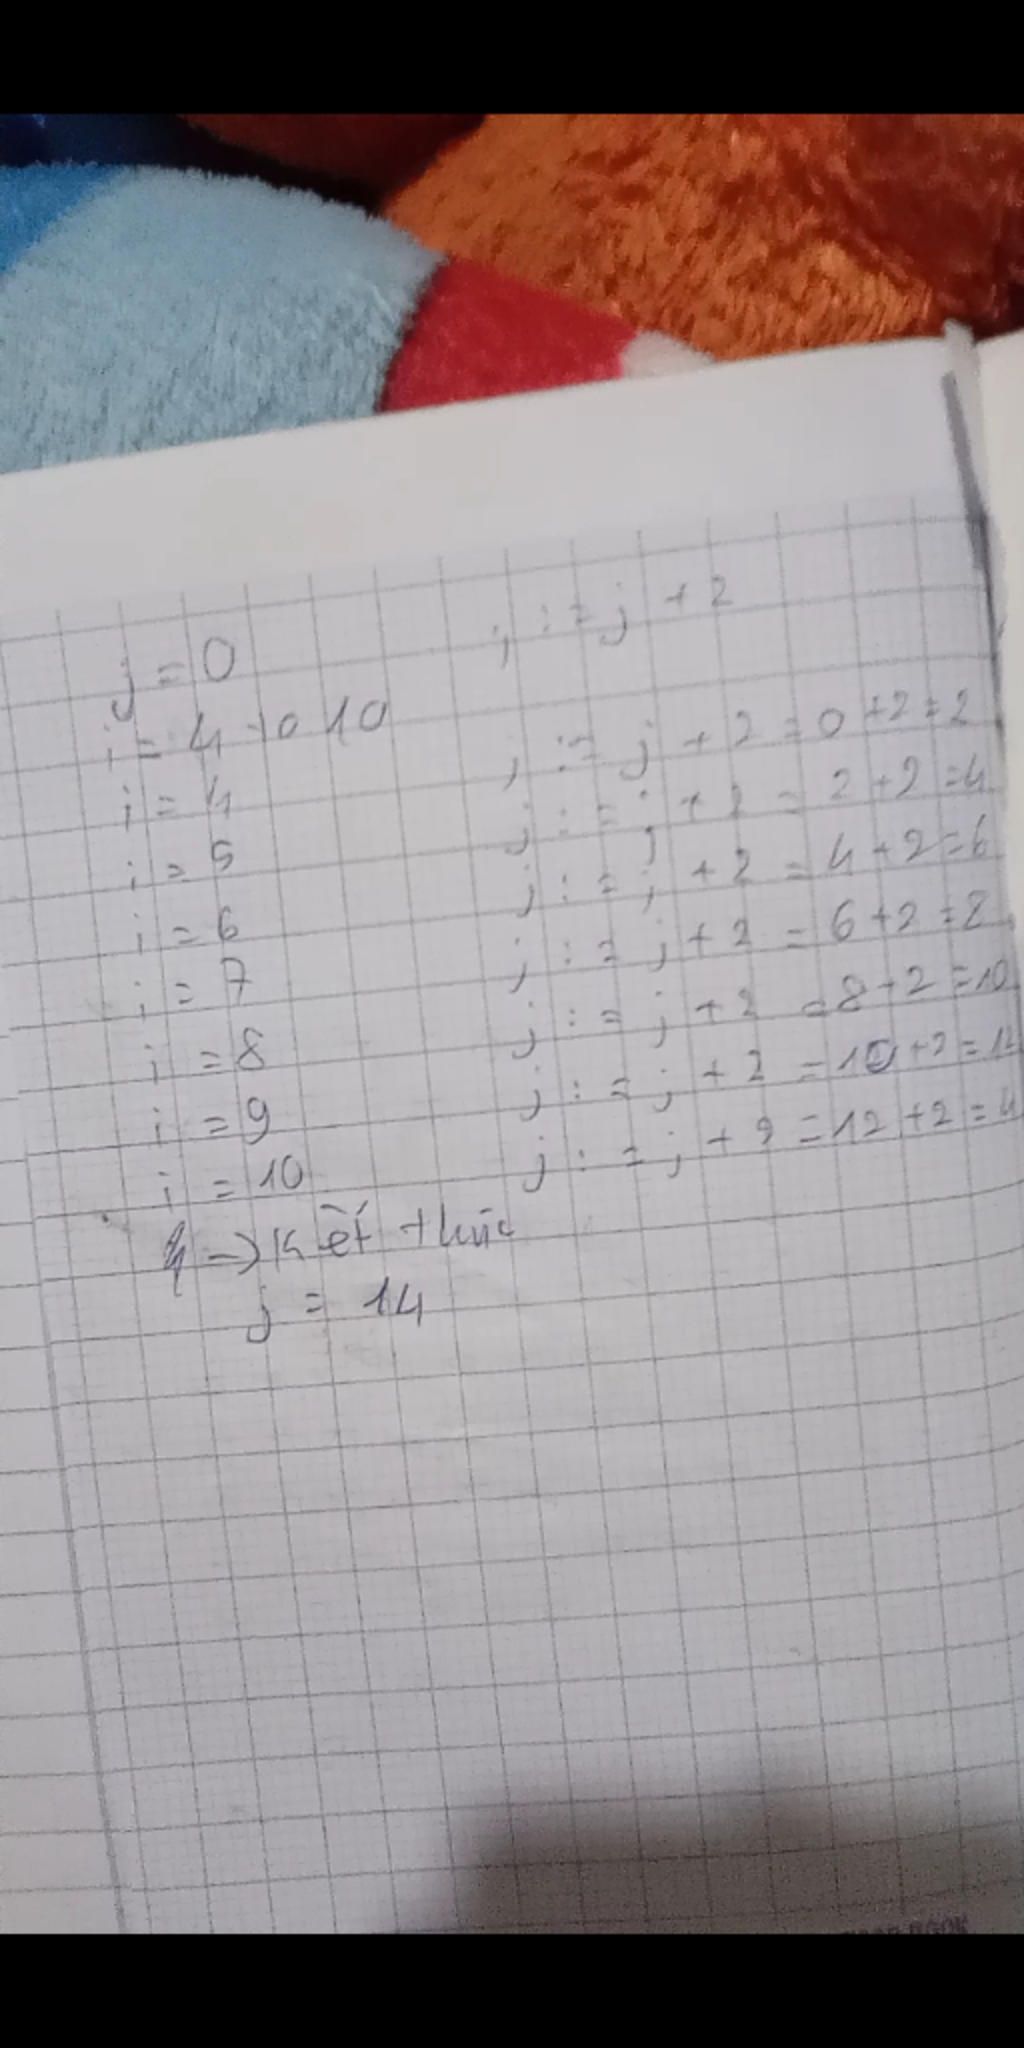 j = 0 j := j + 2
i = 4 to 10
i = 4 j := j + 2 = 0 + 2 = 2
i = 5 j := j + 2 = 2 + 2 = 4
i = 6 j := j + 2 = 4 + 2 = 6
i = 7 j := j + 2 = 6 + 2 = 8
i = 8 j := j + 2 = 8 + 2 = 10
i = 9 j := j + 2 = 10 + 2 = 12
i = 10 j := j + 2 = 12 + 2 =
-> Kết thúc
j = 14